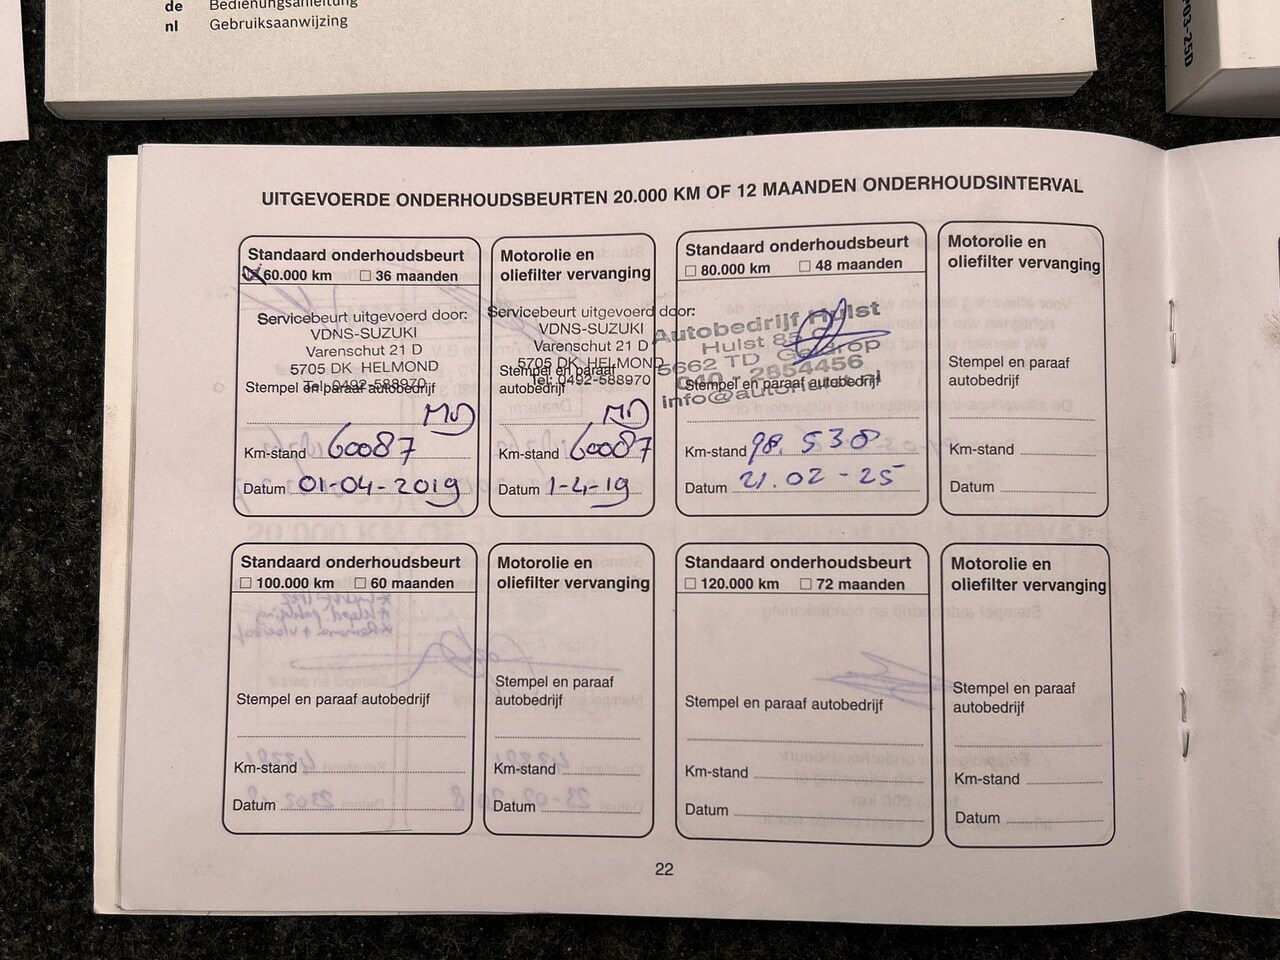 de Bedienungsanleitung
nl Gebruiksaanwijzing
UITGEVOERDE ONDERHOUDSBEURTEN 20.000 KM OF 12 MAANDEN ONDERHOUDSINTERVAL
Standaard onderhoudsbeurt
60.000 km 36 maanden
Servicebeurt uitgevoerd door:
VDNS-SUZUKI
Varenschut 21 D
5705 DK HELMOND
Tel. 0492-588970
Stempel en paraaf autobedrijf
Km-stand 60087
Datum 01-04-2019
Motorolie en
oliefilter vervanging
Servicebeurt uitgevoerd door:
VDNS-SUZUKI
Varenschut 21 D
5705 DK HELMOND
Tel. 0492-588970
Stempel en paraaf
autobedrijf
Km-stand 60087
Datum 1-4-19
Standaard onderhoudsbeurt
80.000 km 48 maanden
Autobedrijf Hulst
Hulst
5662 TD
040 - 2854456
Stempel en paraaf autobedrijf
Km-stand 98.538
Datum 21.02-25
Motorolie en
oliefilter vervanging
Stempel en paraaf
autobedrijf
Km-stand
Datum
Standaard onderhoudsbeurt
100.000 km 60 maanden
Stempel en paraaf autobedrijf
Km-stand
Datum
Motorolie en
oliefilter vervanging
Stempel en paraaf
autobedrijf
Km-stand
Datum
Standaard onderhoudsbeurt
120.000 km 72 maanden
Stempel en paraaf autobedrijf
Km-stand
Datum
Motorolie en
oliefilter vervanging
Stempel en paraaf
autobedrijf
Km-stand
Datum
22